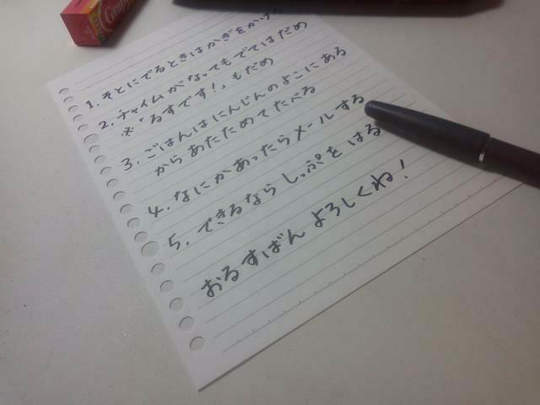 1. そとにでるときはかぎをかける
2. チャイムがなってもでてはだめ
※「るすです!」もだめ
3. ごはんはにんじんのよこにある
からあたためてたべる
4. なにかあったらメールする
5. できるならしっぷをはる
おるすばんよろしくね!